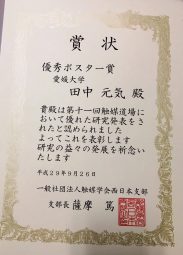 賞状
優秀ポスター賞
愛媛大学
田中 元気 殿
貴殿は第十一回触媒道場に
おいて優れた研究発表をさ
れたと認められました
よってこれを表彰します
研究の益々の発展を祈念い
たします
平成29年9月26日
一般社団法人触媒学会西日本支部
支部長 薩摩 篤